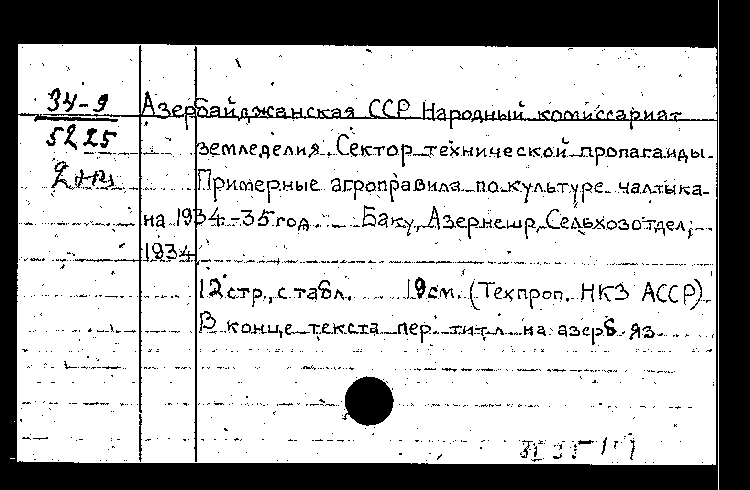 34-9
5225
Азербайджанская ССР Народный комиссариат
земледелия. Сектор технической пропаганды.
Примерные агроправила по культуре чалтыка
на 1934-35 год. Баку, Азернешр, Сельхозотдел,
1934
12 стр., с табл. 19 см. (Техпроп. НКЗ АССР)
В конце текста пер. титл на азерб. яз.